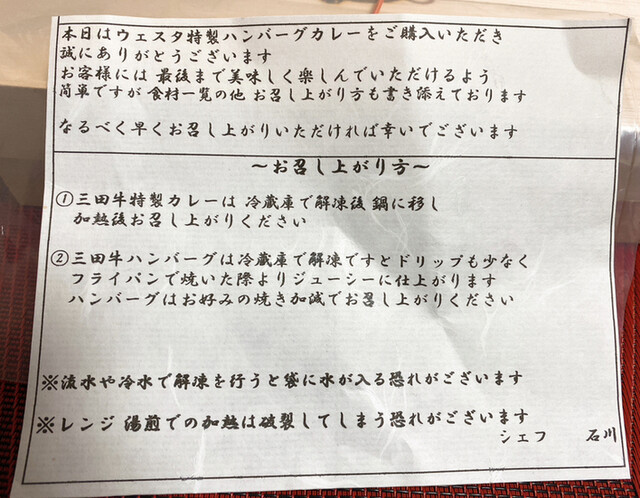 本日はウェスタ特製ハンバーグカレーをご購入いただき
誠にありがとうございます
お客様には 最後まで美味しく楽しんでいただけるよう
簡単ですが 食材一覧の他 お召し上がり方も書き添えております
なるべく早くお召し上がりいただければ幸いでございます
〜お召し上がり方〜
①三田牛特製カレーは 冷蔵庫で解凍後 鍋に移し
加熱後お召し上がりください
②三田牛ハンバーグは冷蔵庫で解凍ですとドリップも少なく
フライパンで焼いた際よりジューシーに仕上がります
ハンバーグはお好みの焼き加減でお召し上がりください
※流水や冷水で解凍を行うと袋に水が入る恐れがございます
※レンジ 湯煎での加熱は破裂してしまう恐れがございます
シェフ 石川